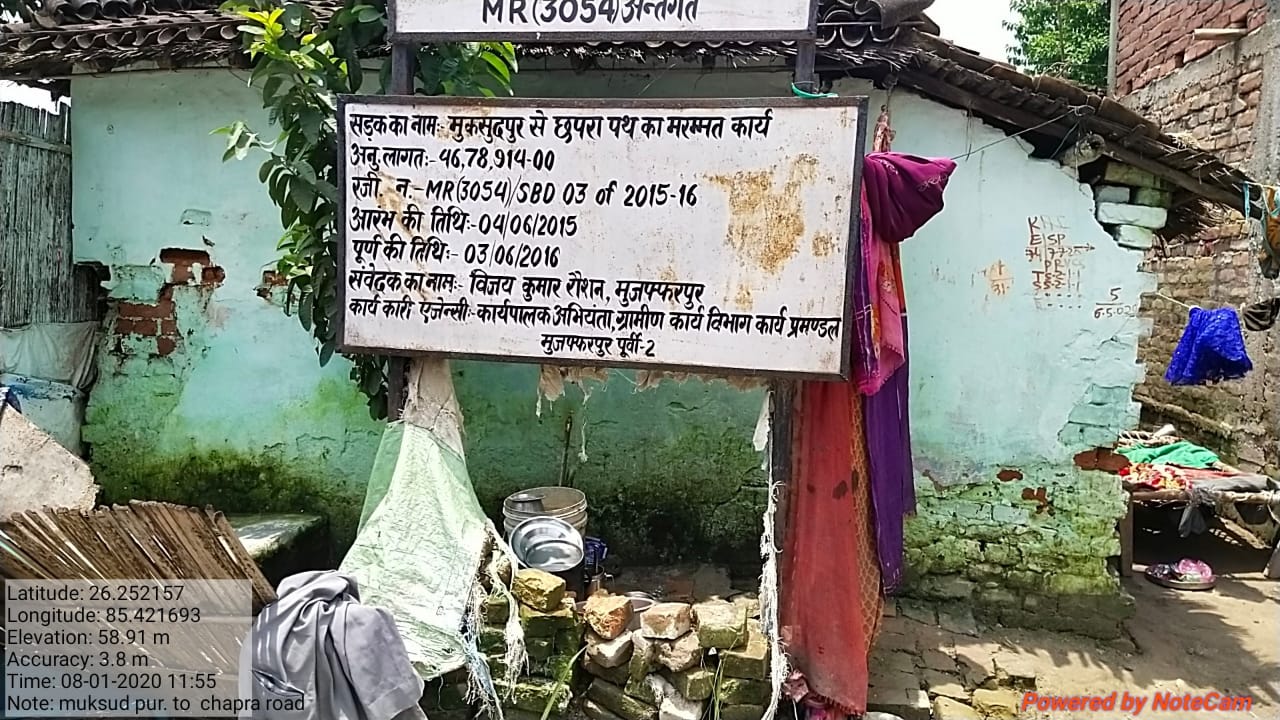 MR(3054)अन्तर्गत
सड़क का नाम:- मुकसुदपुर से छपरा पथ का मरम्मत कार्य
अनु. लागत:- 46,78,914-00
रजी. न.- MR(3054)/SBD 03 of 2015-16
आरंभ की तिथि:- 04/06/2015
पूर्ण की तिथि:- 03/06/2016
संवेदक का नाम:- विजय कुमार रौशन, मुजफ्फरपुर
कार्य कारी एजेन्सी:- कार्यपालक अभियंता, ग्रामीण कार्य विभाग कार्य प्रमण्डल
मुजफ्फरपुर पूर्वी-2
Latitude: 26.252157
Longitude: 85.421693
Elevation: 58.91 m
Accuracy: 3.8 m
Time: 08-01-2020 11:55
Note: muksud pur. to chapra road
Powered by NoteCam